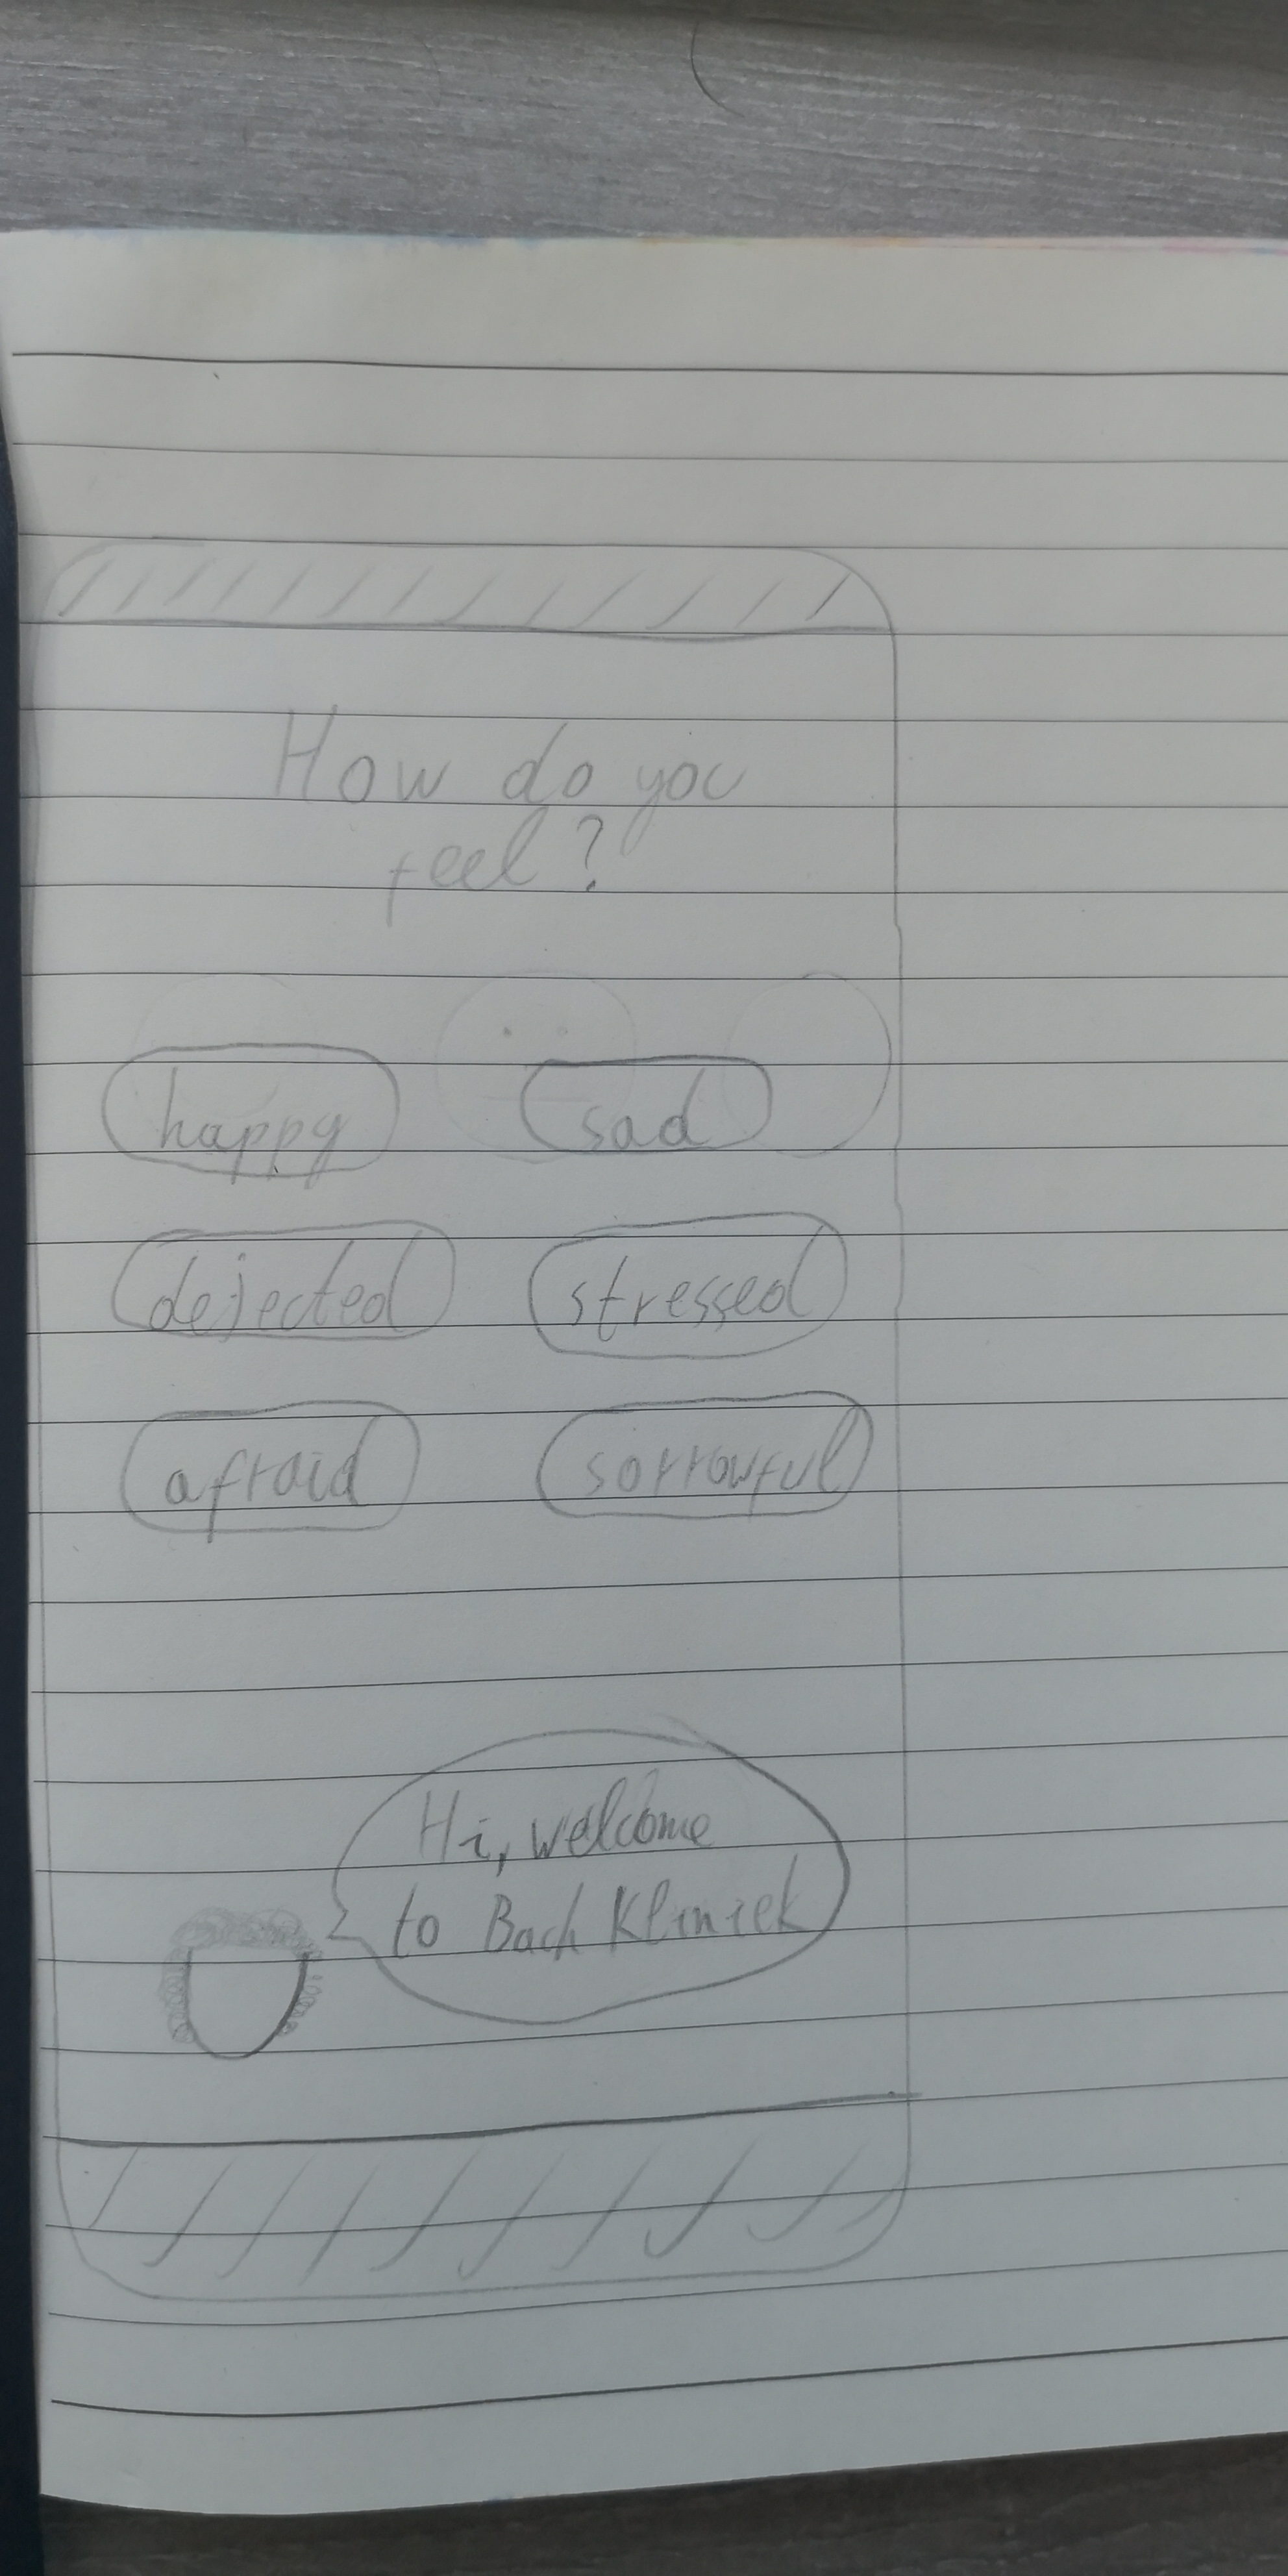 How do you
feel?
happy
sad
dejected
stressed
afraid
sorrowful
Hi, welcome
to Bach Kliniek